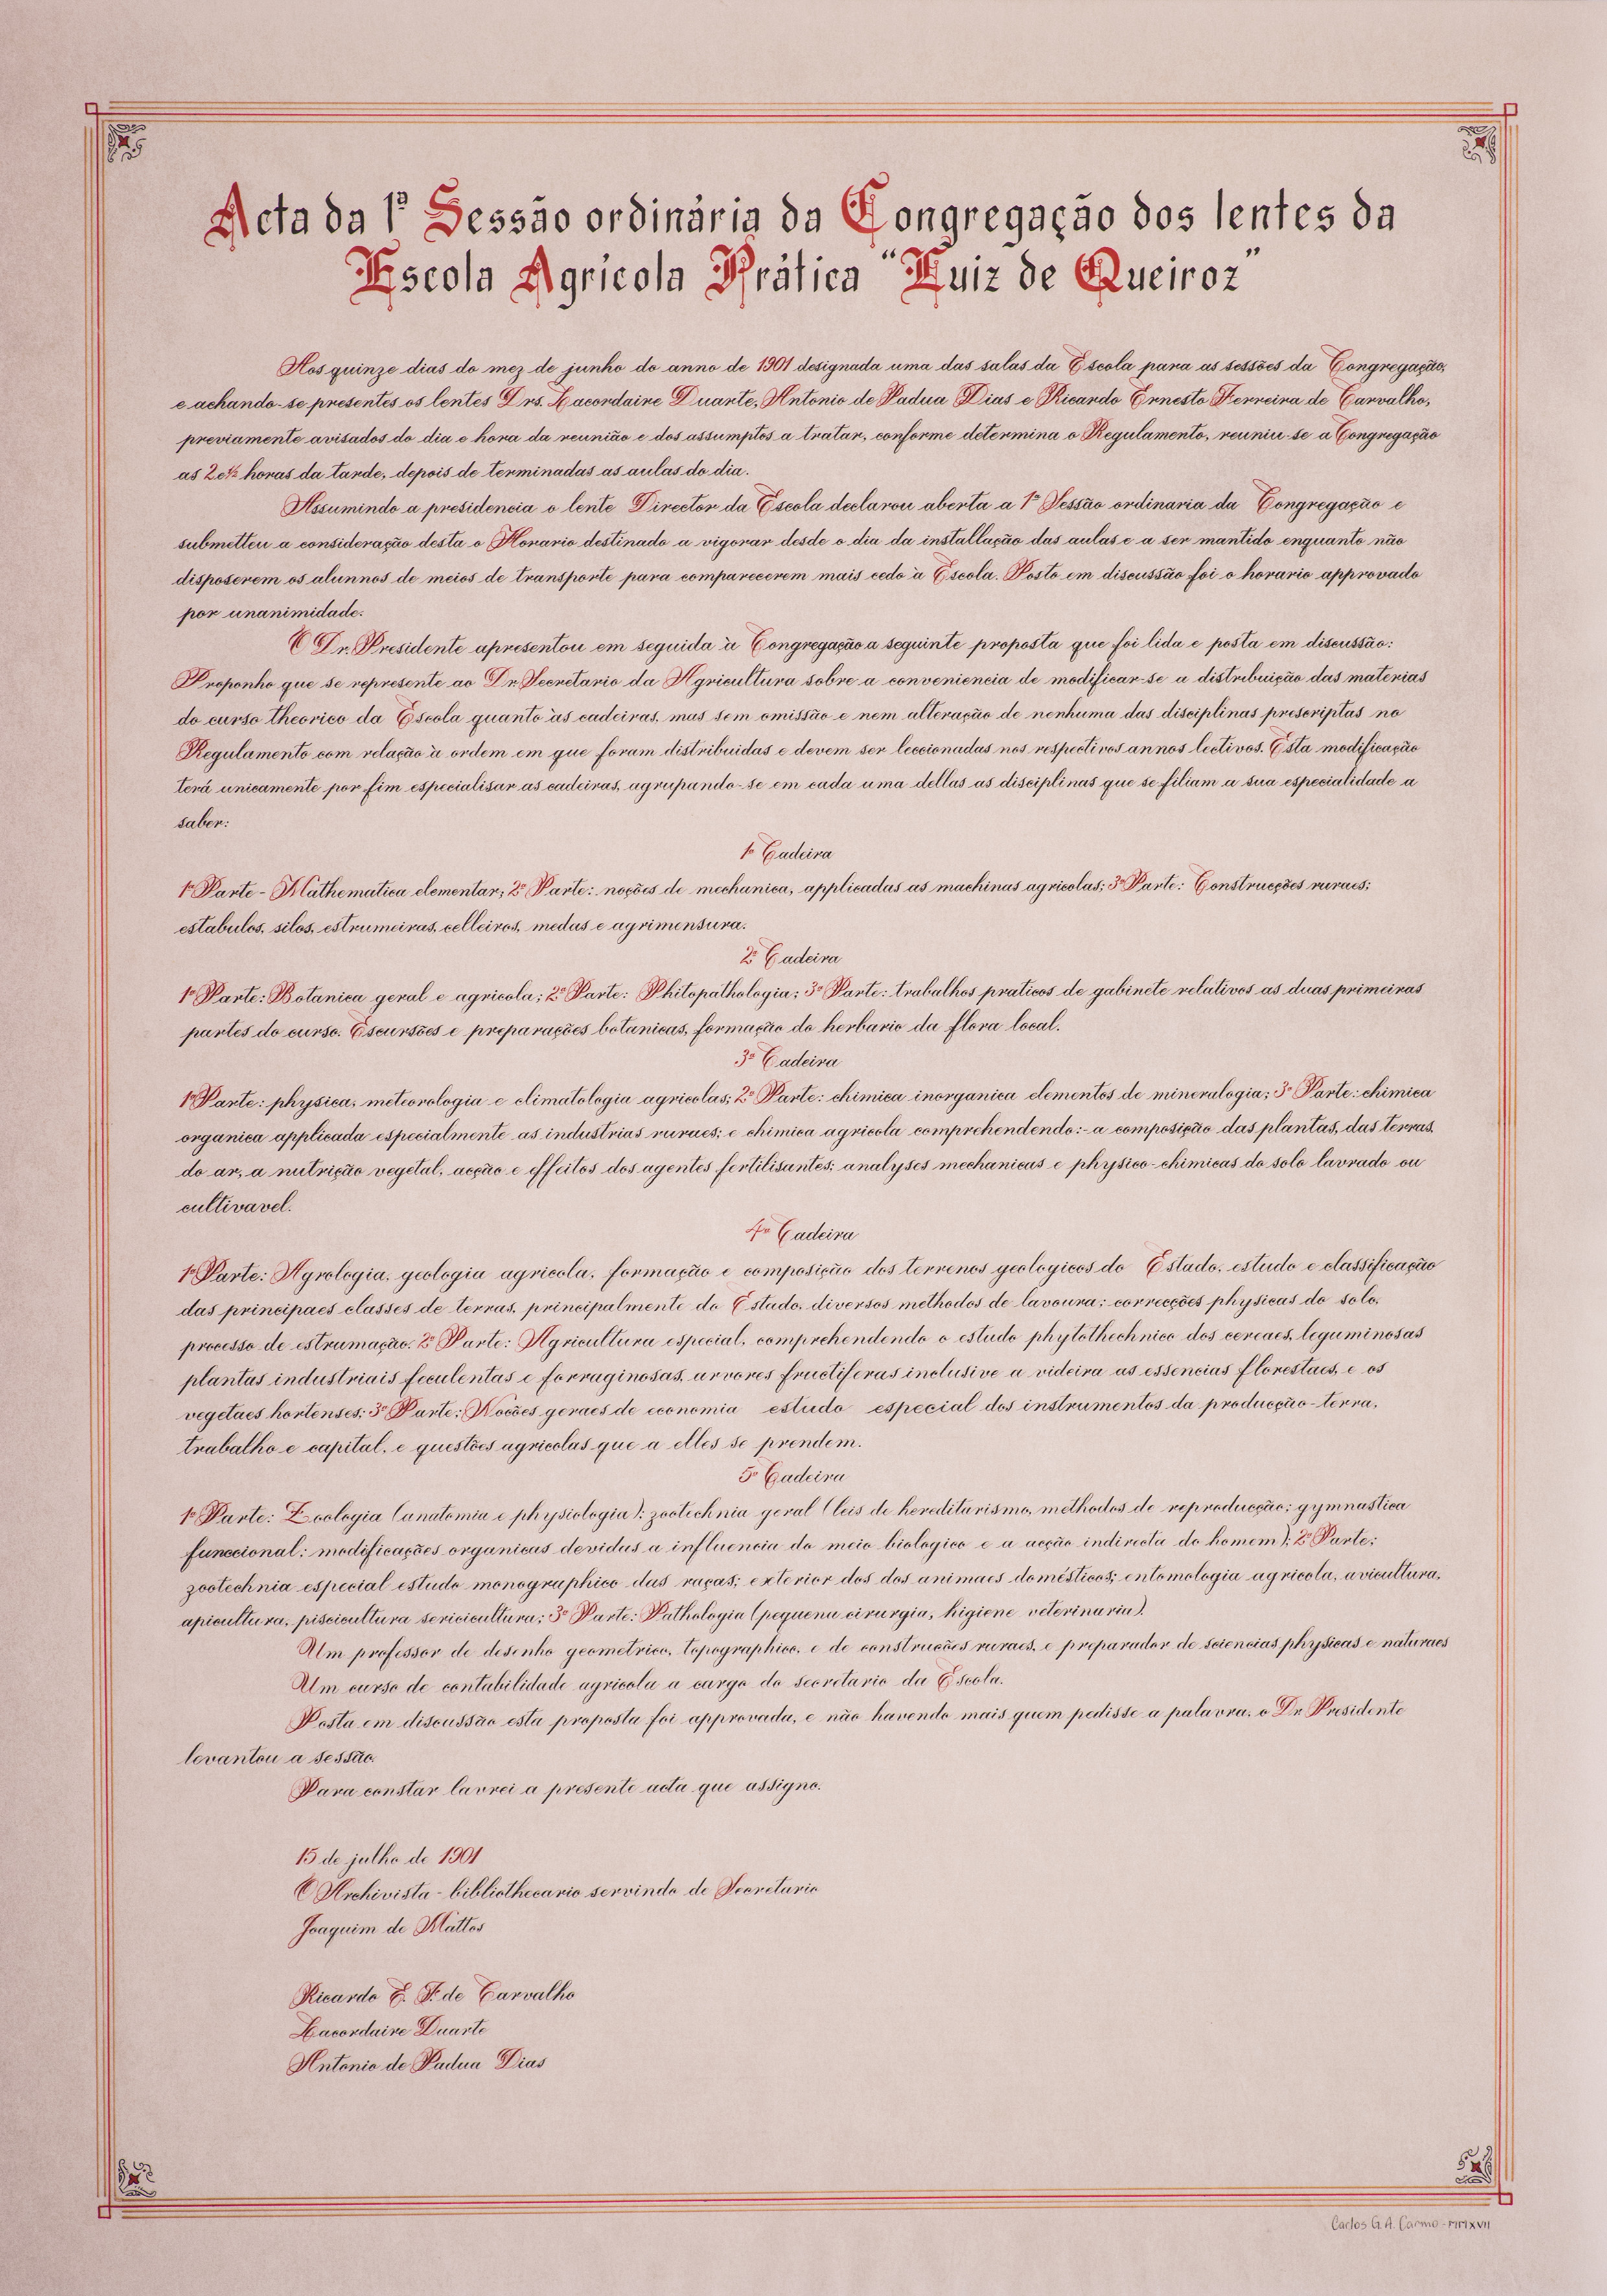 Acta da 1ª Sessão ordinária da Congregação dos lentes da
Escola Agrícola Prática "Luiz de Queiroz"
Aos quinze dias do mez de junho do anno de 1901 designada uma das salas da Escola para as sessões da Congregação,
e achando-se presentes os lentes Drs. Lacordaire Duarte, Antonio de Padua Dias e Ricardo Ernesto Ferreira de Carvalho,
previamente avisados do dia e hora da reunião e dos assumptos a tratar, conforme determina o Regulamento, reuniu-se a Congregação
as 2 e ½ horas da tarde, depois de terminadas as aulas do dia.
Assumindo a presidencia o lente Director da Escola declarou aberta a 1ª Sessão ordinaria da Congregação e
submetteu a consideração desta o Horario destinado a vigorar desde o dia da installação das aulas e a ser mantido enquanto não
disposerem os alunnos de meios de transporte para comparecerem mais cedo à Escola. Posto em discussão foi o horario approvado
por unanimidade.
O Dr. Presidente apresentou em seguida à Congregação a seguinte proposta que foi lida e posta em discussão:
Proponho que se represente ao Dr. Secretario da Agricultura sobre a conveniencia de modificar-se a distribuição das materias
do curso theorico da Escola quanto às cadeiras, mas sem omissão e nem alteração de nenhuma das disciplinas prescriptas no
Regulamento com relação à ordem em que foram distribuidas e devem ser leccionadas nos respectivos annos lectivos. Esta modificação
terá unicamente por fim especialisar as cadeiras, agrupando-se em cada uma dellas as disciplinas que se filiam a sua especialidade a
saber:
1ª Cadeira
1ª Parte - Mathematica elementar; 2ª Parte: noções de mechanica, applicadas as machinas agricolas; 3ª Parte: Construcções ruraes;
estabulos, silos, estrumeiras, celleiros, medas e agrimensura.
2ª Cadeira
1ª Parte: Botanica geral e agricola; 2ª Parte: Phitopathologia; 3ª Parte: trabalhos praticos de gabinete relativos as duas primeiras
partes do curso. Escursões e preparações botanicas, formação do herbario da flora local.
3ª Cadeira
1ª Parte: physica, meteorologia e climatologia agricolas; 2ª Parte: chimica inorganica elementos de mineralogia; 3ª Parte: chimica
organica applicada especialmente as industrias ruraes; e chimica agricola comprehendendo:- a composição das plantas, das terras,
do ar, a nutrição vegetal, acção e effeitos dos agentes fertilisantes; analyses mechanicas e physico-chimicas do solo lavrado ou
cultivavel.
4ª Cadeira
1ª Parte: Agrologia, geologia agricola, formação e composição dos terrenos geologicos do Estado, estudo e classificação
das principaes classes de terras, principalmente do Estado, diversos methodos de lavoura; correcções physicas do solo,
processo de estrumação. 2ª Parte: Agricultura especial, comprehendendo o estudo phytothechnico dos cereaes, leguminosas
plantas industriais feculentas e forraginosas, arvores fructiferas inclusive a videira as essencias florestaes, e os
vegetaes hortenses; 3ª Parte: Nocões geraes de economia estudo especial dos instrumentos da producção-terra,
trabalho e capital, e questões agricolas que a elles se prendem.
5ª Cadeira
1ª Parte: Zoologia (anatomia e physiologia); zootechnia geral (leis de hereditarismo, methodos de reproducção; gymnastica
funccional; modificações organicas devidas a influencia do meio biologico e a acção indirecta do homem); 2ª Parte:
zootechnia especial estudo monographico das raças; exterior dos dos animaes domésticos; entomologia agricola, avicultura,
apicultura, piscicultura sericicultura; 3ª Parte: Pathologia (pequena cirurgia, higiene veterinaria).
Um professor de desenho geometrico, topographico, e de construcões ruraes, e preparador de sciencias physicas e naturaes
Um curso de contabilidade agricola a cargo do secretario da Escola.
Posta em discussão esta proposta foi approvada, e não havendo mais quem pedisse a palavra, o Dr. Presidente
levantou a sessão.
Para constar lavrei a presente acta que assigno.
15 de julho de 1901
O Archivista-bibliothecario servindo de Secretario
Joaquim de Mattos
Ricardo E. F. de Carvalho
Lacordaire Duarte
Antonio de Padua Dias
Carlos G. A. Carmo - MMXVII